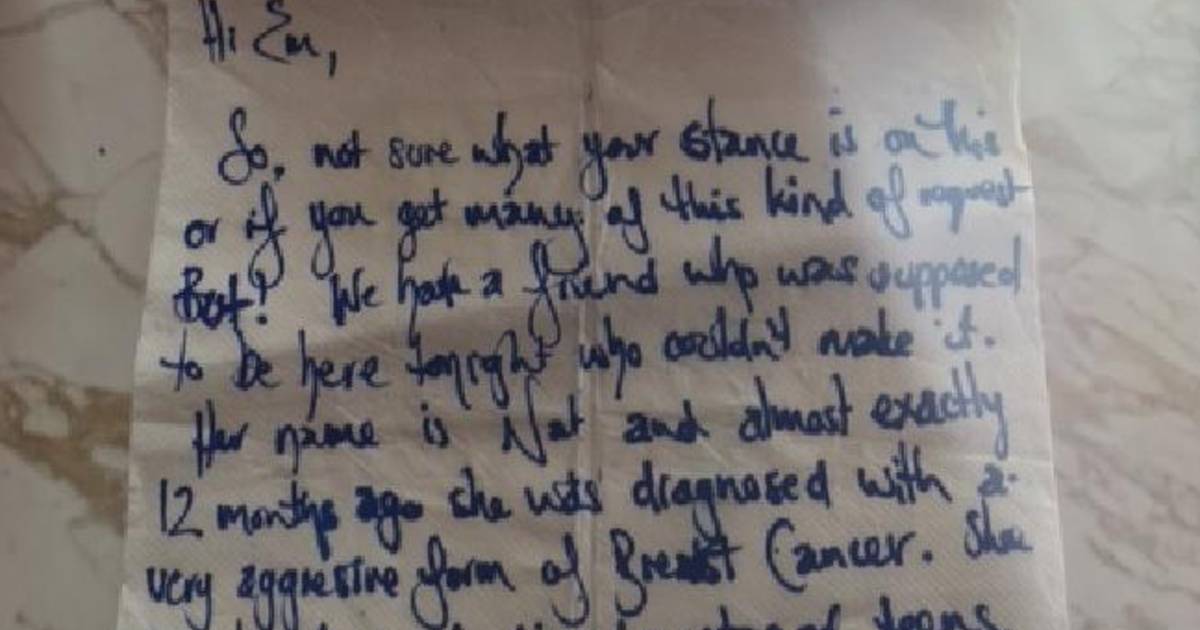 Hi Em,
So, not sure what your stance is on this
or if you get many of this kind of request
But? We have a friend who was supposed
to be here tonight who couldn't make it.
Her name is Nat and almost exactly
12 months ago she was diagnosed with a
very aggresive form of Breast Cancer. She